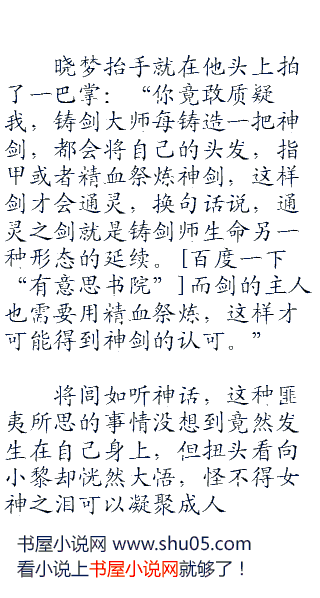 晓梦抬手就在他头上拍
了一巴掌：“你竟敢质疑
我，铸剑大师每铸造一把神
剑，都会将自己的头发，指
甲或者精血祭炼神剑，这样
剑才会通灵，换句话说，通
灵之剑就是铸剑师生命另一
种形态的延续。[百度一下
“有意思书院”]而剑的主人
也需要用精血祭炼，这样才
可能得到神剑的认可。”
将闾如听神话，这种匪
夷所思的事情没想到竟然发
生在自己身上，但扭头看向
小黎却恍然大悟，怪不得女
神之泪可以凝聚成人
书屋小说网 www.shu05.com
看小说上书屋小说网就够了！